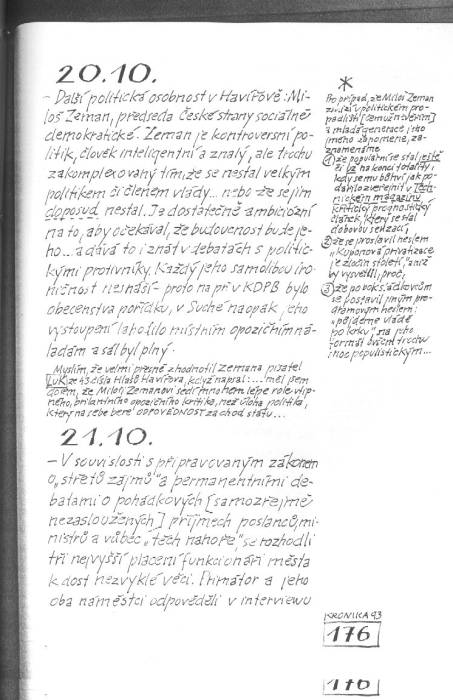 20.10.
– Další politická osobnost v Havířově: Mi-
loš Zeman, předseda České strany sociálně
demokratické. Zeman je kontroversní po-
litik, člověk inteligentní a znalý, ale trochu
zakomplexovaný tím, že se nestal velkým
politikem či členem vlády... nebo že se jím
doposud nestal. Je dostatečně ambiciózní
na to, aby očekával, že budoucnost bude je-
ho... a dává to i znát v debatách s politic-
kými protivníky. Každý jeho samolibou iro-
ničnost nesnáší – proto na př. v KDPB bylo
obecenstva pořídku, v Suché naopak jeho
vystoupení lahodilo místním opozičním ná-
ladám a sál byl plný.
Myslím, že velmi přesně zhodnotil Zemana pisatel
LUK ze 43. čísla Hlasů Havířova, když napsal: ... měl jsem
dojem, že Miloši Zemanovi sedí mnohem lépe role vtip-
ného, brilantního opozičního kritika, než úloha politika,
který na sebe bere ODPOVĚDNOST za chod státu...
21.10.
– V souvislosti s připravovaným zákonem
o „střetu zájmů“ a permanentními de-
batami o pohádkových [samozřejmě
nezasloužených] příjmech poslanců, mi-
nistrů a vůbec „těch nahoře“, se rozhodli
tři nejvyšší placení funkcionáři města
k dost nezvyklé věci. Primátor a jeho
oba náměstci odpověděli v interviewu
*
Pro případ, že Miloš Zeman
v politickém pro-
padlišti [čemuž nevěřím]
a mladá generace jeho
jméno zapomene, za-
znamenáme
① že populárním se stal ještě
či už na konci totality,
kdy se mu bůhví jak po-
dařilo zveřejnit v Tech-
nickém magazínu
kritický prognostický
článek, který se stal
dobovou senzací,
② že se proslavil heslem
„Kuponová privatizace
je zločin století“, aniž
by vysvětlil, proč,
③ že po boku sládkovců
se postavil jiným pro-
gramovým heslem:
„půjdeme vládě
po krku“, na jeho
formát ovšem trochu
moc populistickým...
KRONIKA 93
176